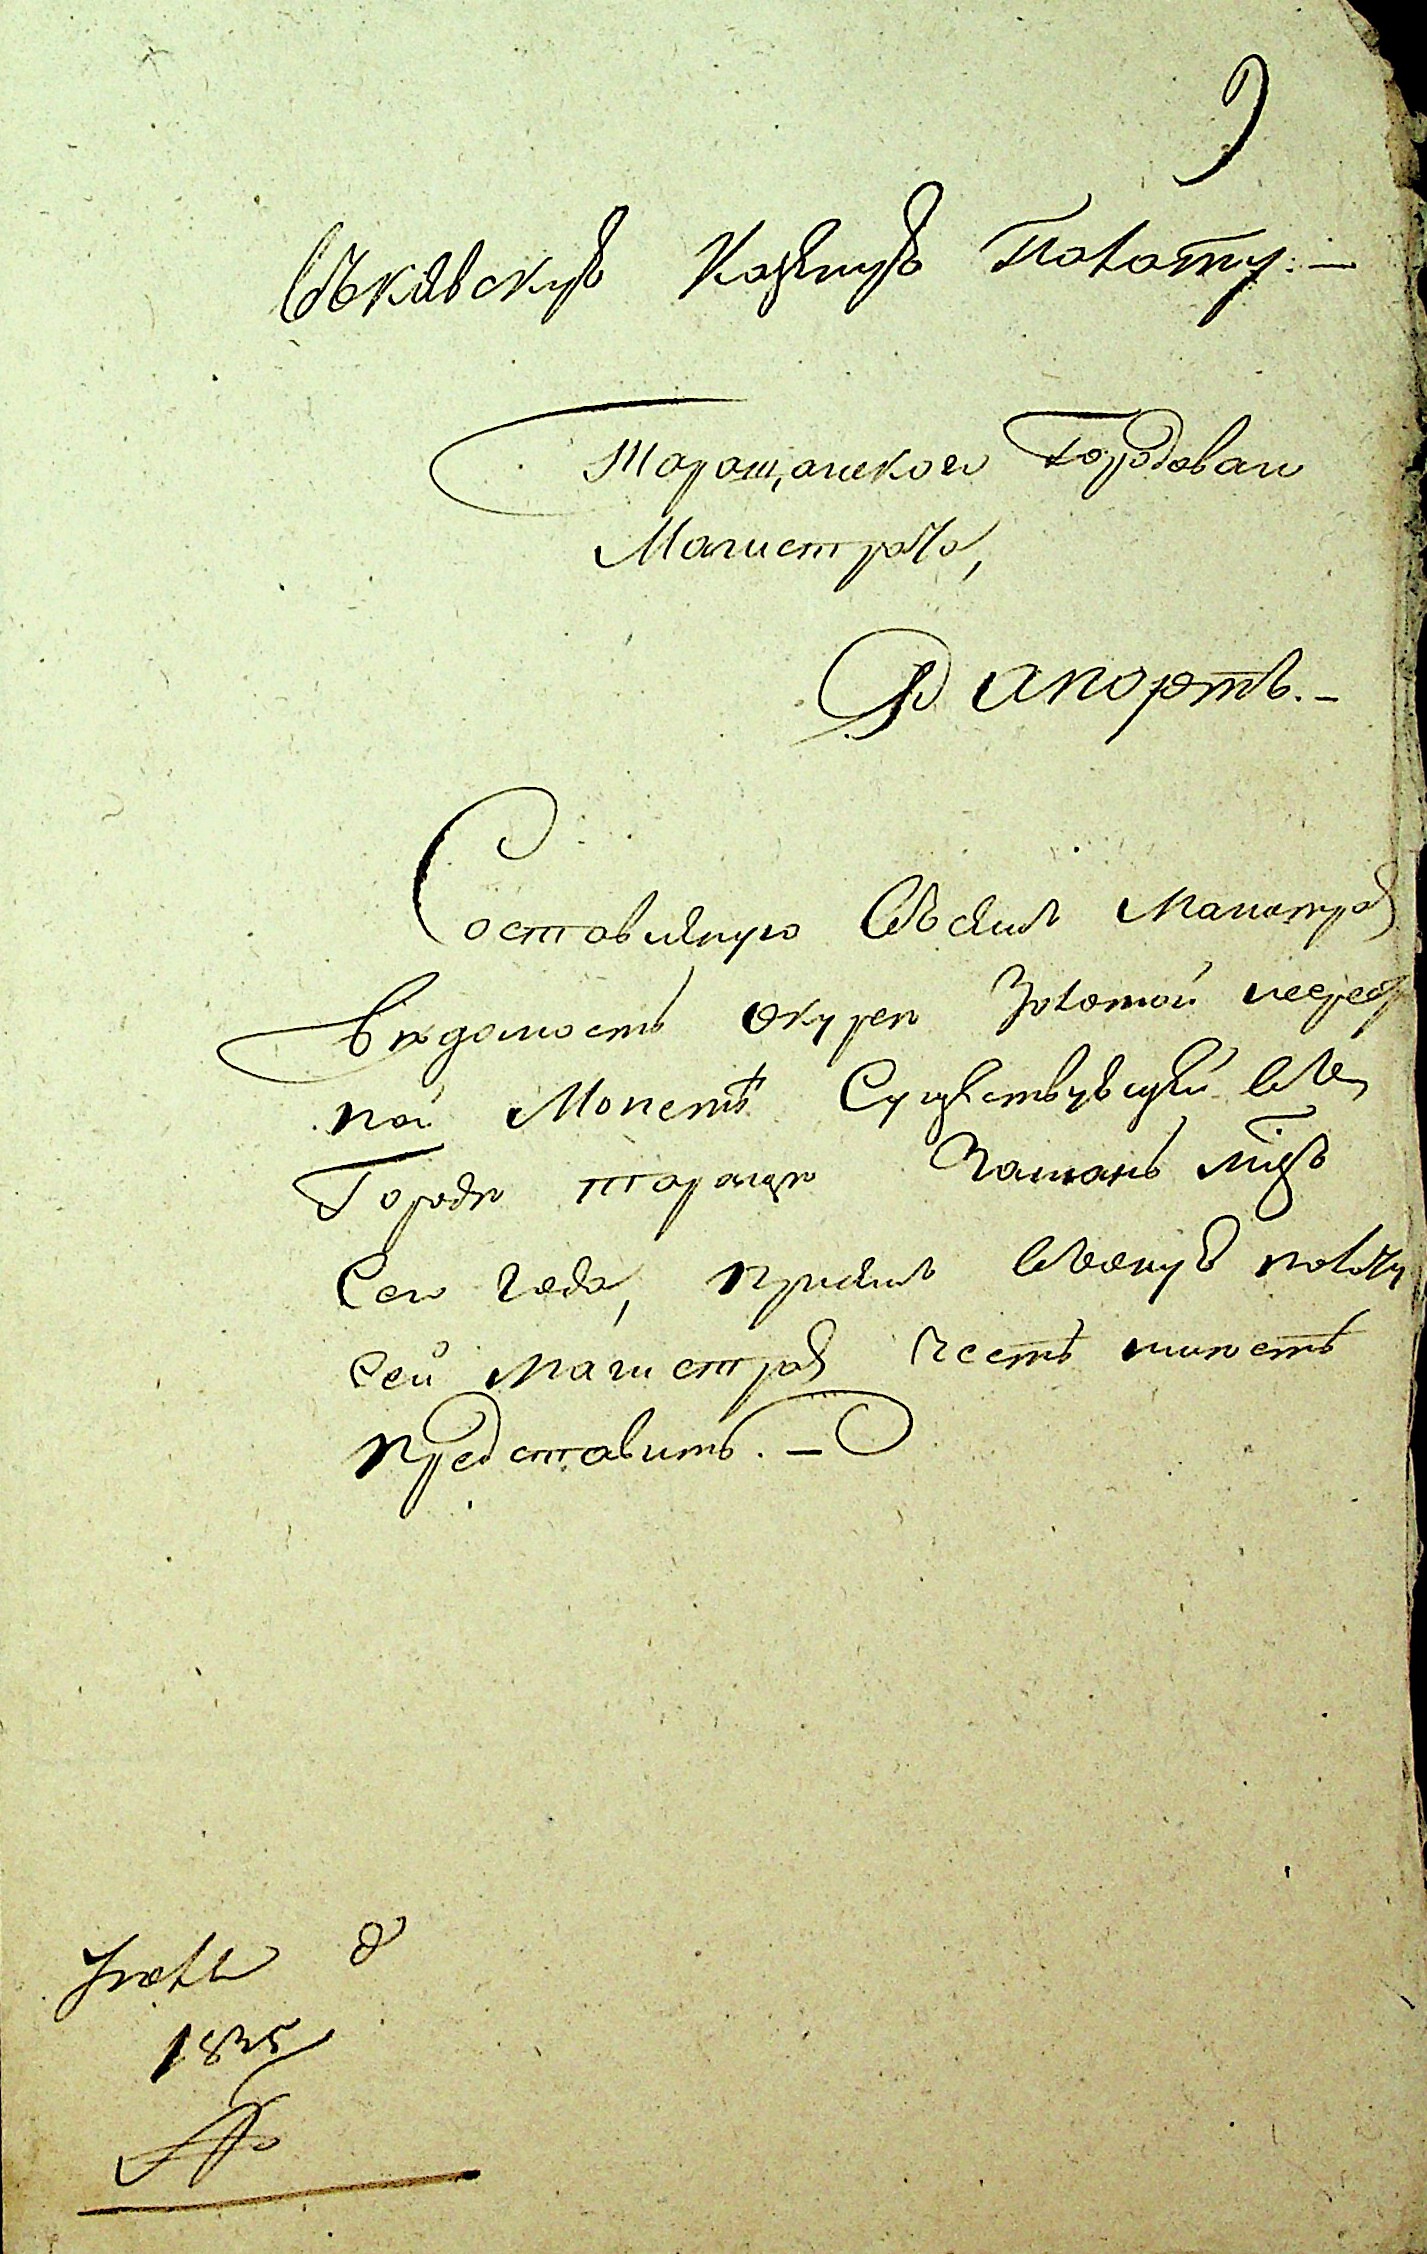 Въ Киевскую Казенную Палату. —
Таращанского Городоваго
Магистрата,
Рапортъ. —
Составленную Въ семъ Магистрате
Ведомость о курсе Золотой и серебр
ной Монетъ Существующей въ
Городе Тараще
Сего года, при семъ въ оную палату
сей Магистратъ Честь имеетъ
представить. —
8
1835